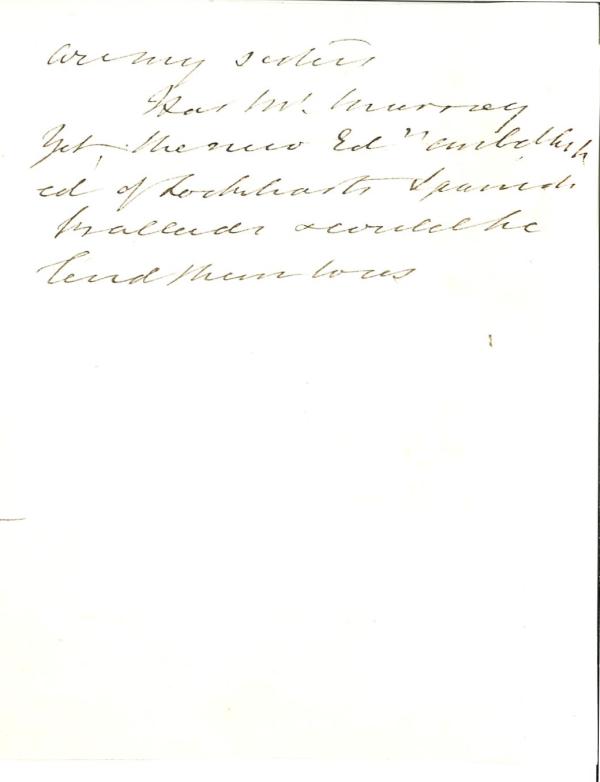 are my sisters
Has Mr. Murray
yet, the new Edn embellish
ed of Lockharts Spanish
Ballads & could he
lend them to us